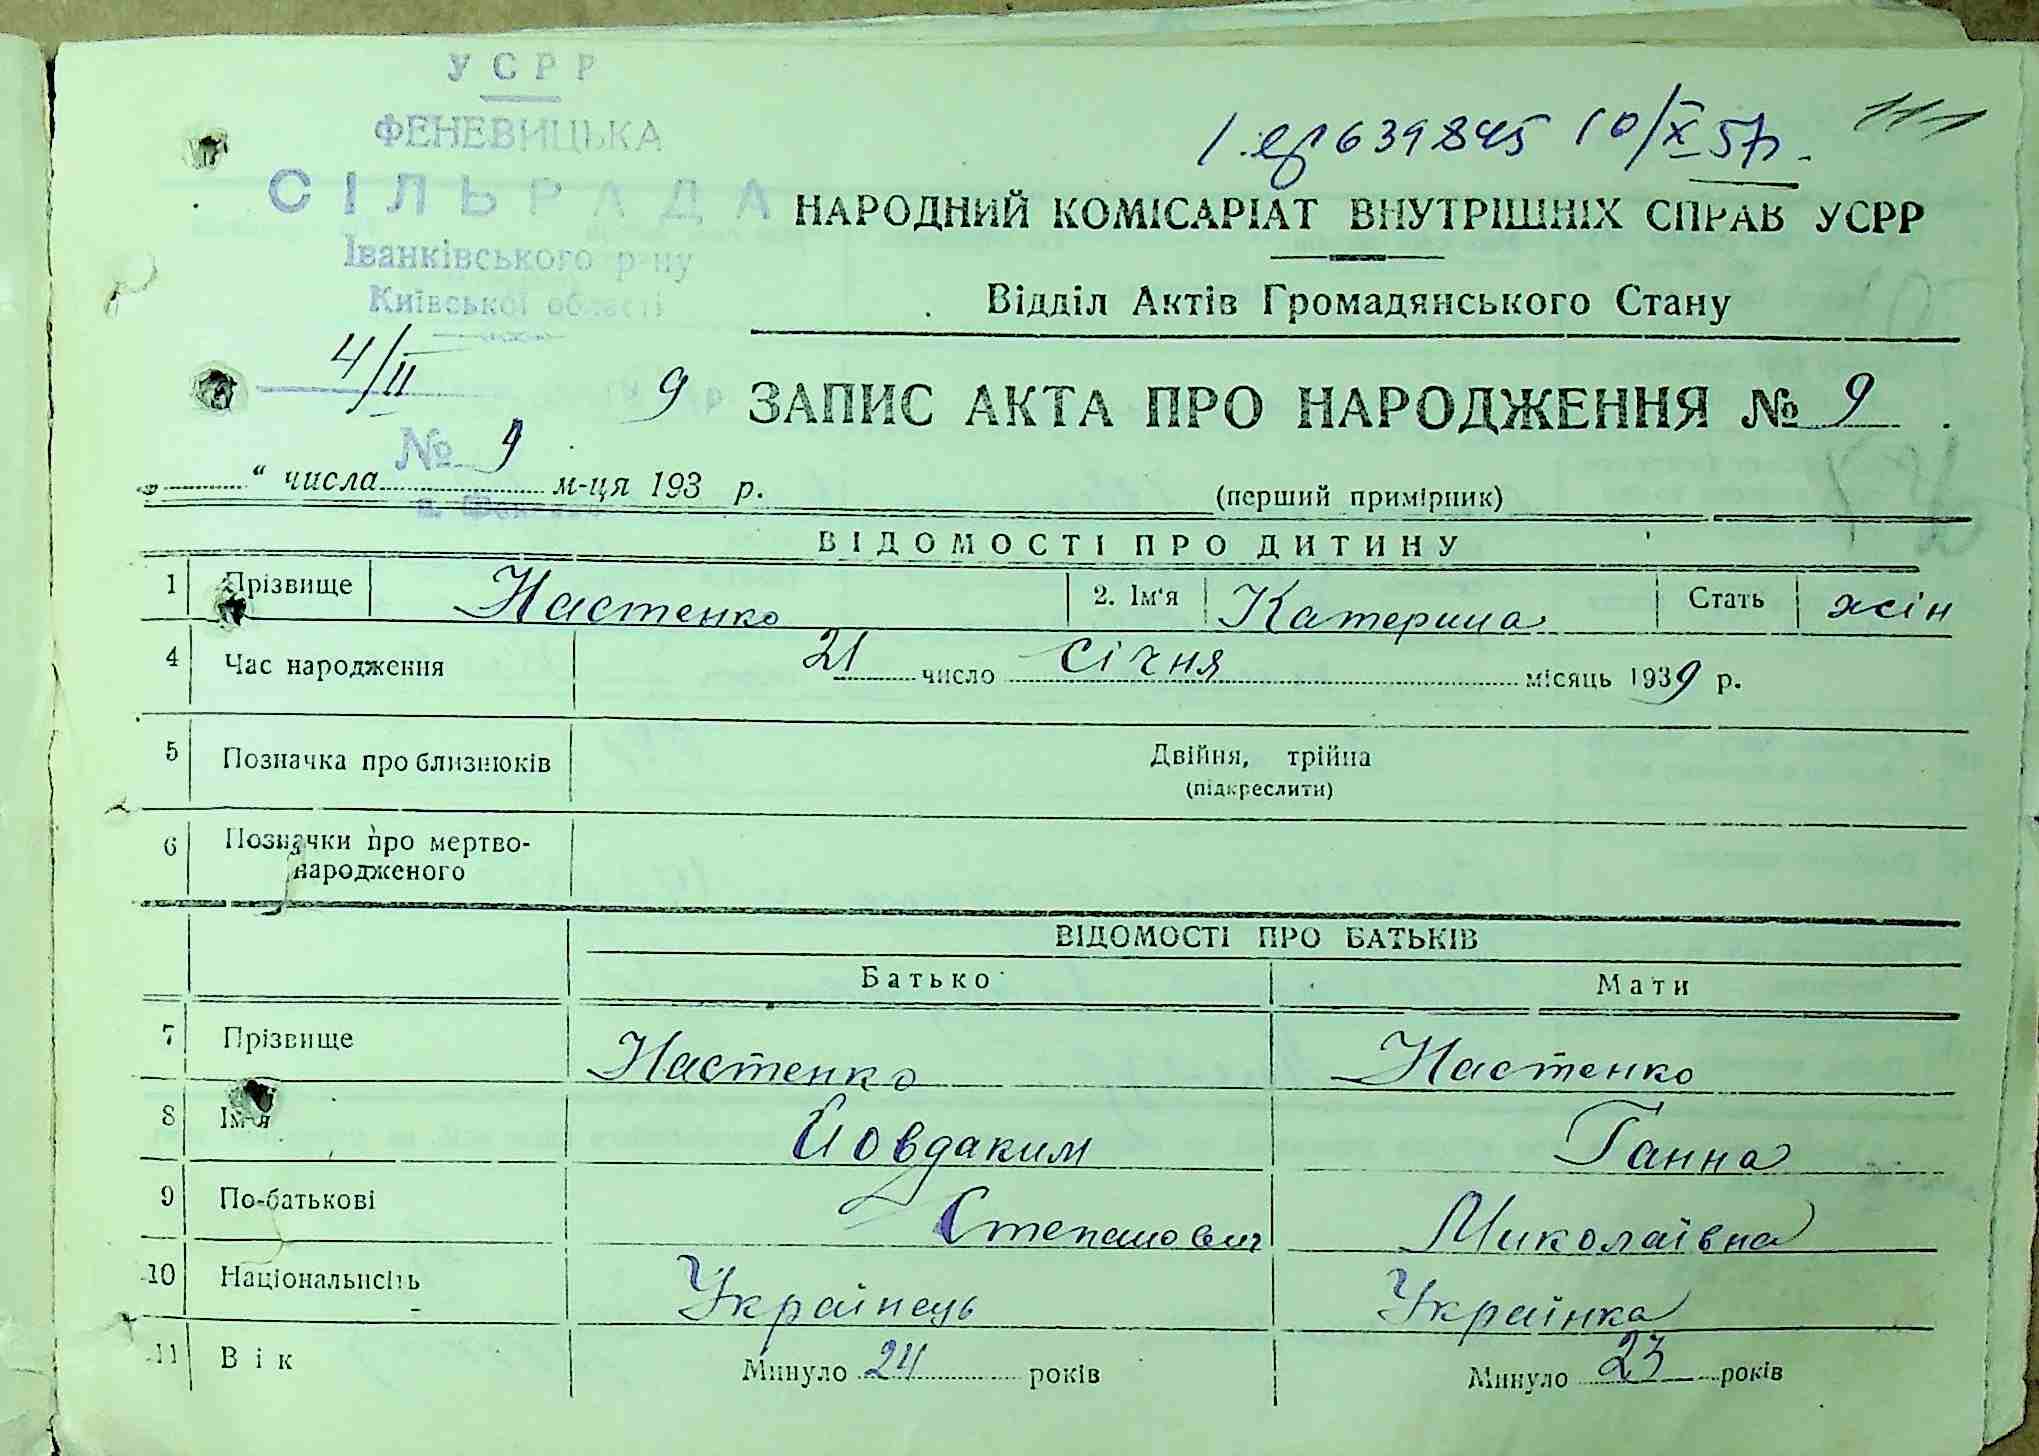 УСРР
ФЕНЕВИЦЬКА
СІЛЬРАДА
Іванківського р-ну
Київської області
4/II 9
№ 9
639845 10/X 57р.
111
НАРОДНИЙ КОМІСАРІАТ ВНУТРІШНІХ СПРАВ УСРР
Відділ Актів Громадянського Стану
ЗАПИС АКТА ПРО НАРОДЖЕННЯ № 9
„ “ числа м-ця 193 р.
(перший примірник)
ВІДОМОСТІ ПРО ДИТИНУ
1 Прізвище Настенко 2. Ім'я Катерина Стать жін
4 Час народження 21 число Січня місяць 1939 р.
5 Позначка про близнюків Двійня, трійна
(підкреслити)
6 Позначки про мертво-
народженого
ВІДОМОСТІ ПРО БАТЬКІВ
Батько Мати
7 Прізвище Настенко Настенко
8 Ім'я Йовдаким Ганна
9 По-батькові Степанович Миколаївна
10 Національнсіть Українець Українка
11 Вік Минуло 24 років Минуло 23 років